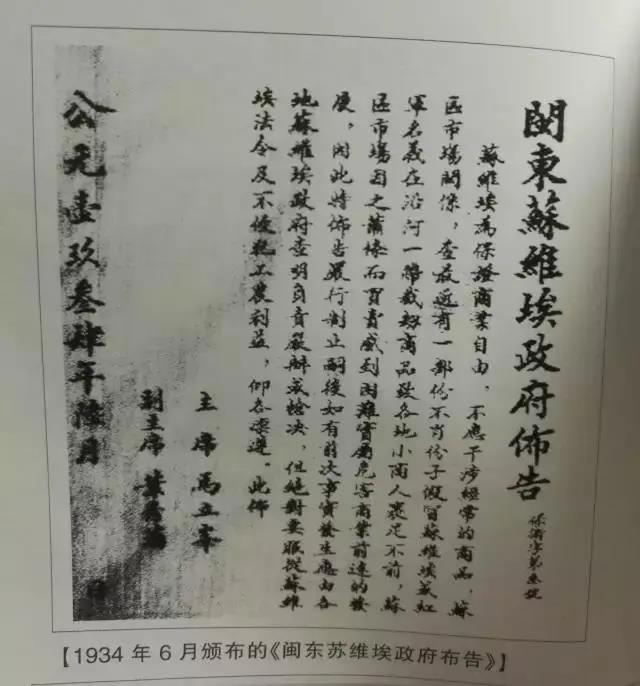 閩東蘇維埃政府佈告
保衛字第
蘇維埃為保證商業自由,不應干涉經常的商品,蘇
區市場關係,查最近有一部份不肖份子假冒蘇維埃或紅
軍名義在沿河一帶截劫商品致各地小商人裹足不前,蘇
區市場因之蕭條而買賣感到困難實屬危害商業前途的發
展,因此特佈告嚴行制止嗣後如有前次事實發生應由各
地蘇維埃政府查明負責嚴辦或槍決,但絕對要服從蘇維
埃法令及不侵犯工農利益,仰各凛遵。此佈
主席 馬立峯
副主席 葉
公元壹玖叁肆年陸月 日
【1934 年 6 月颁布的《闽东苏维埃政府布告》】